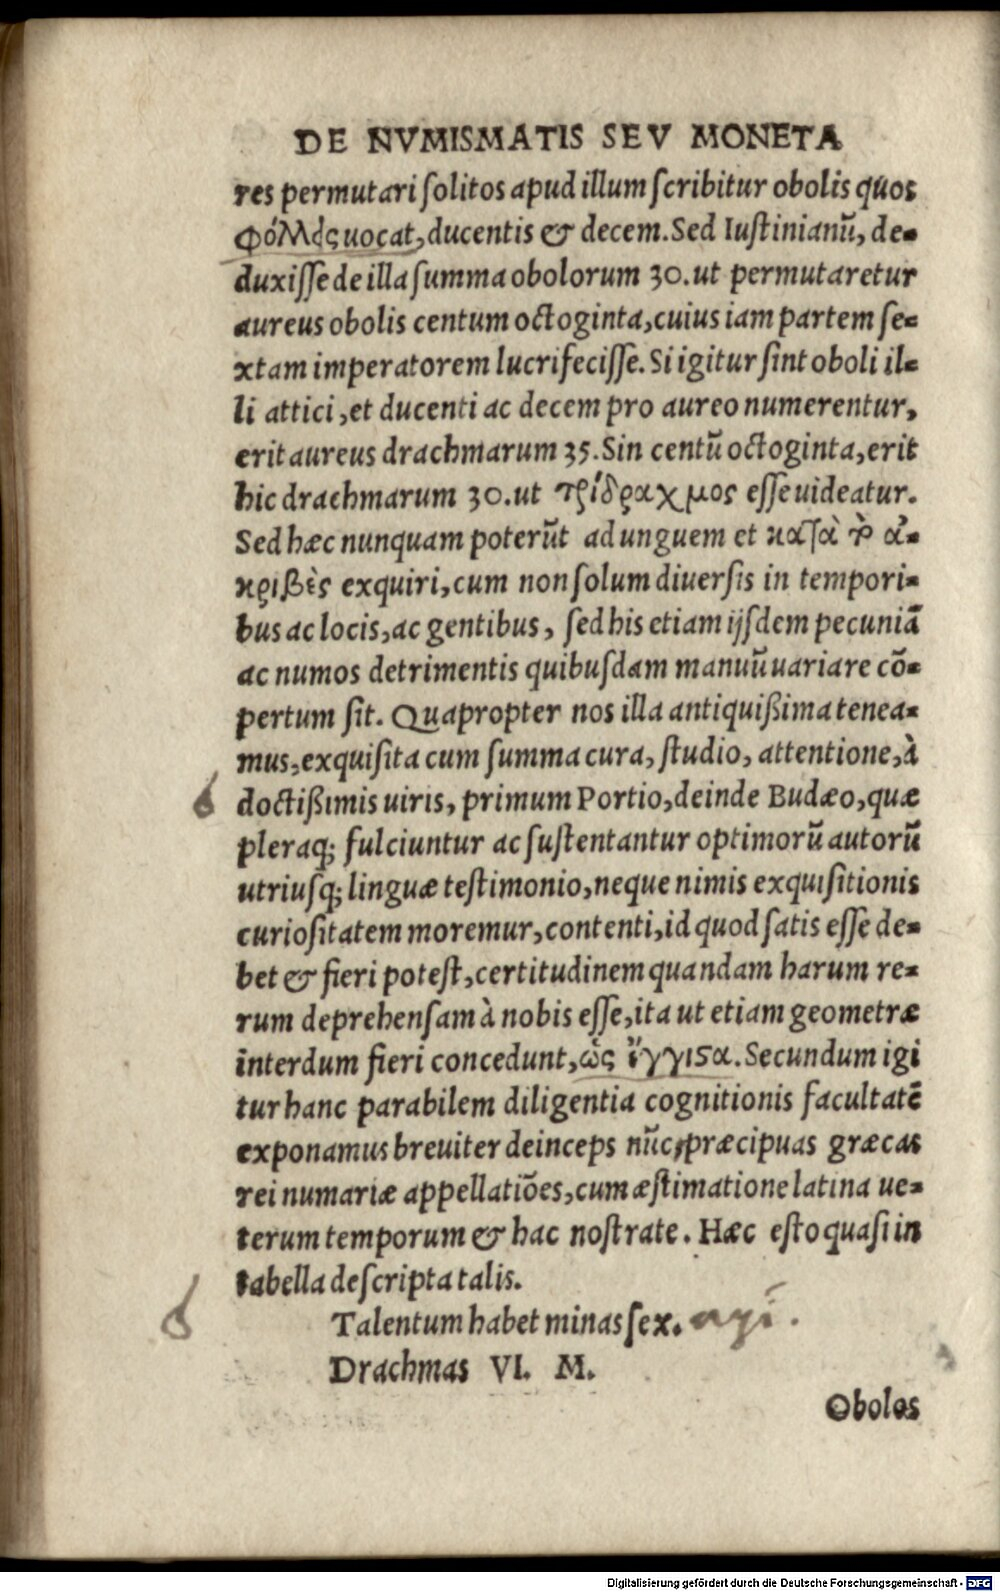 DE NVMISMATIS SEV MONETA
res permutari solitos apud illum scribitur obolis quos
φόλλεις uocat, ducentis & decem. Sed Iustinianũ, de-
duxisse de illa summa obolorum 30. ut permutaretur
aureus obolis centum octoginta, cuius iam partem se-
xtam imperatorem lucrifecisse. Si igitur sint oboli il-
li attici, et ducenti ac decem pro aureo numerentur,
erit aureus drachmarum 35. Sin centũ octoginta, erit
hic drachmarum 30. ut τρίδραχμος esse uideatur.
Sed hæc nunquam poterũt ad unguem et κατὰ τὸ ἀ-
κριβὲς exquiri, cum non solum diuersis in tempori-
bus ac locis, ac gentibus, sed his etiam ijsdem pecuniã
ac numos detrimentis quibusdam manuũ uariare cõ-
pertum sit. Quapropter nos illa antiquißima tenea-
mus, exquisita cum summa cura, studio, attentione, à
doctißimis uiris, primum Portio, deinde Budæo, quæ
pleraq; fulciuntur ac sustentantur optimorũ autorũ
utriusq; linguæ testimonio, neque nimis exquisitionis
curiositatem moremur, contenti, id quod satis esse de-
bet & fieri potest, certitudinem quandam harum re-
rum deprehensam à nobis esse, ita ut etiam geometræ
interdum fieri concedunt, ὡς ἔγγιστα. Secundum igi
tur hanc parabilem diligentia cognitionis facultatẽ
exponamus breuiter deinceps nũc, præcipuas græcas
rei numariæ appellatiões, cum æstimatione latina ue-
terum temporum & hac nostrate. Hæc esto quasi in
tabella descripta talis.
Talentum habet minas sex.
Drachmas VI. M.
Obolos
Digitalisierung gefördert durch die Deutsche Forschungsgemeinschaft - DFG